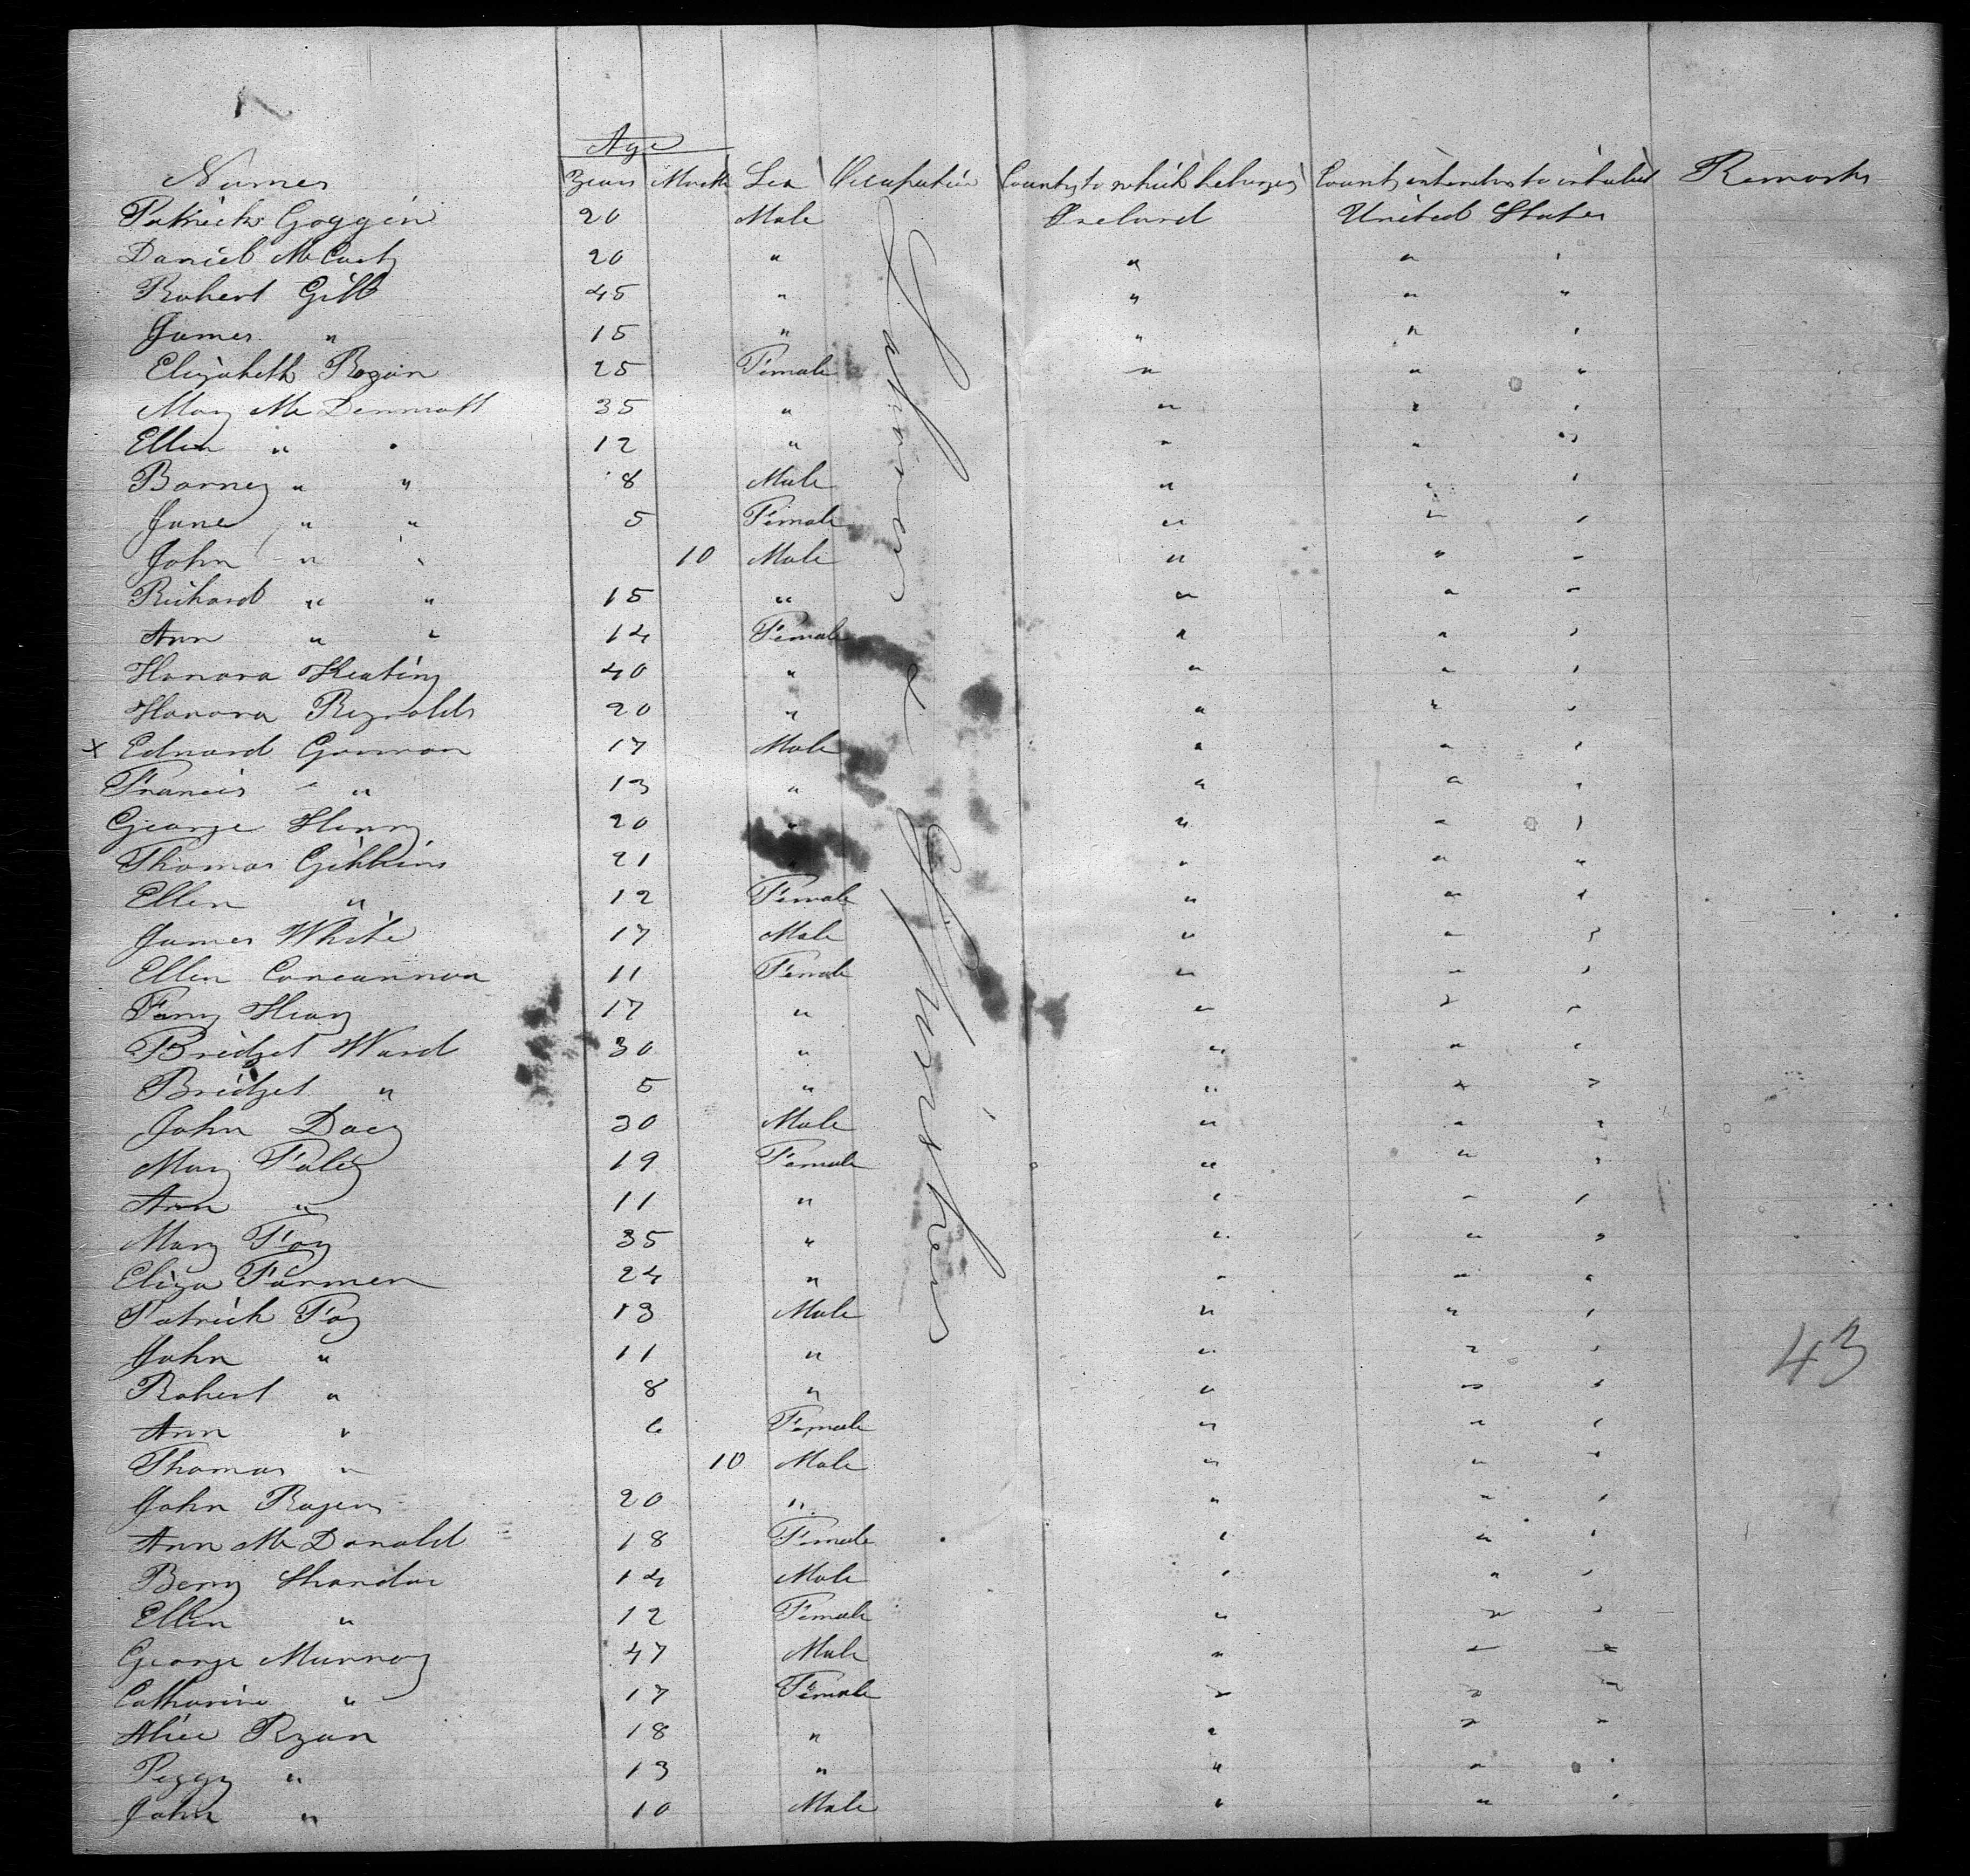 Age
Names Years Month Sex Occupation Country to which belongs Country intends to inhabit Remarks
Patrick Goggin 20 Male Ireland United States
Daniel McCarty 20 " " " "
Robert Gill 45 " " " "
James " 15 " " " "
Elizabeth Rogan 25 Female " " "
Mary McDermott 35 " " " "
Ellen " " 12 " " " "
Barney " " 8 Male " " "
Jane " " 5 Female " " "
John " " 10 Male " " "
Richard " " 15 " " " "
Ann " " 14 Female " " "
Honora Keating 40 " " " "
Honora Reynolds 20 " " " "
x Edward Gorman 17 Male " " "
Francis " " 13 " " " "
George Henry 20 " " " "
Thomas Gibbins 21 " " " "
Ellen " 12 Female " " "
James White 17 Male " " "
Ellen Concannon 11 Female " " "
17 " " " "
Bridget Ward 30 " " " "
Bridget " 5 " " " "
John Dacy 30 Male " " "
Mary Foley 19 Female " " "
Ann " 11 " " " "
Mary Foy 35 " " " "
Eliza Farmer 24 " " " "
Patrick Foy 13 Male " " "
John " 11 " " " "
Robert " 8 " " " "
Ann " 6 Female " " "
Thomas " 10 Male " " "
John Rogers 20 " " " "
Ann McDonald 18 Female " " "
Berny 14 Male " " "
Ellen " 12 Female " " "
George Murray 47 Male " " "
Catharine " 17 Female " " "
Alice Ryan 18 " " " "
Peggy " 13 " " " "
John " 10 Male " " "
Labourers & Spinsters
43